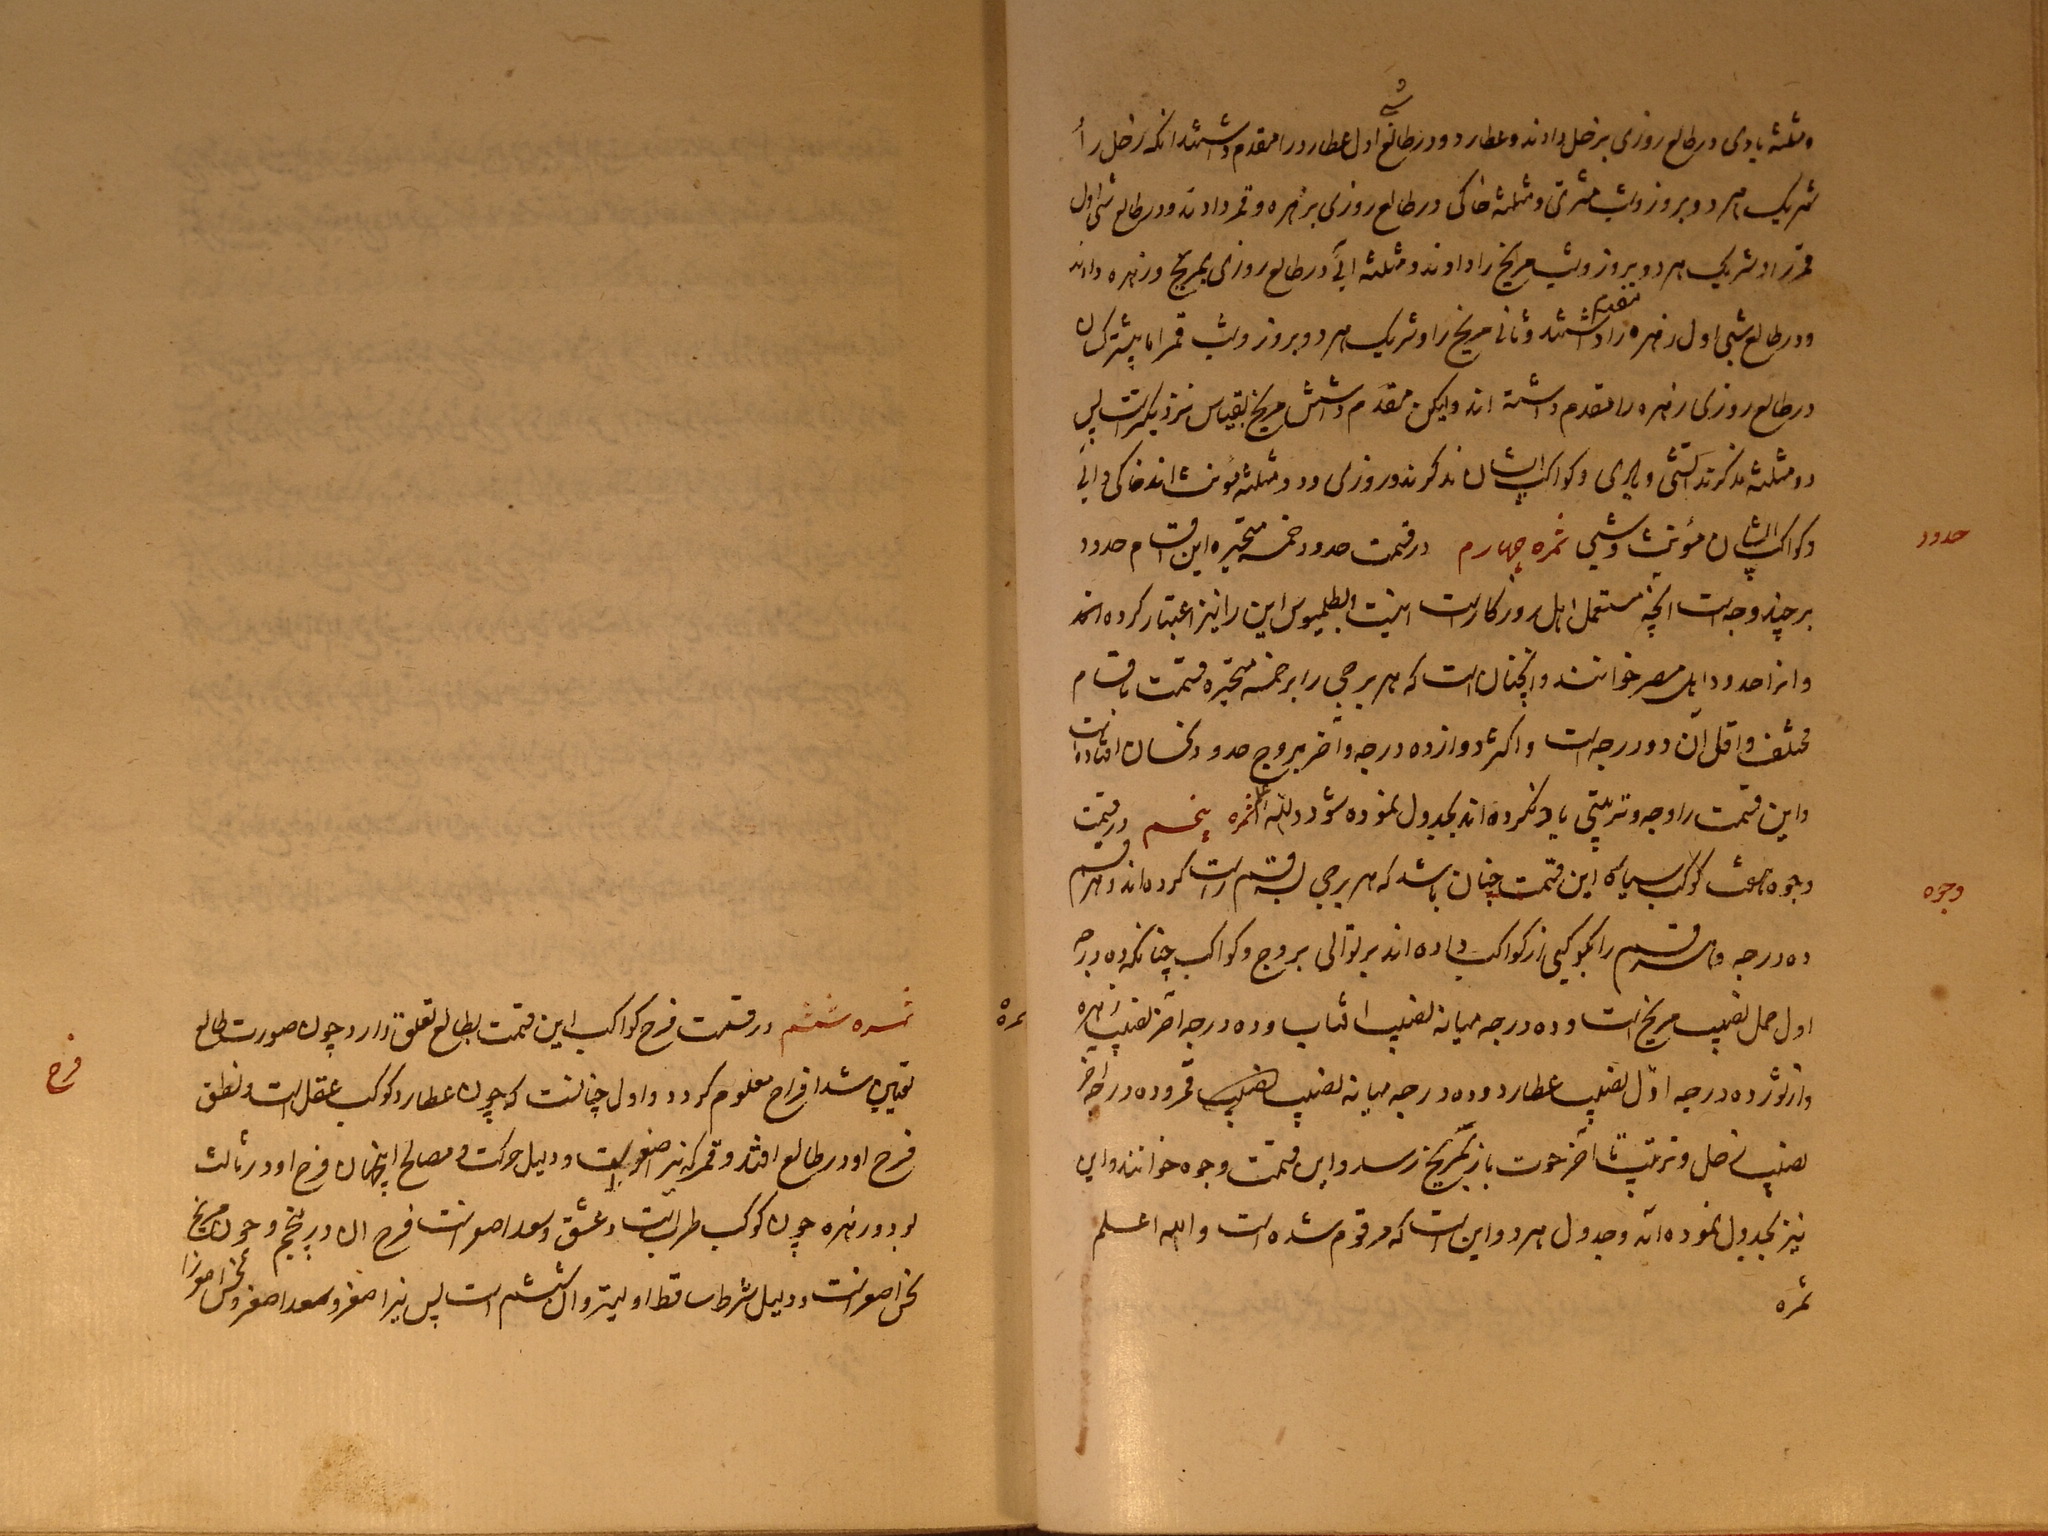 شبی
و مثلثه بادی در طالع روزی بزحل دادند و عطارد و در طالع اول عطارد را مقدم داشتند انکه زحل را
شریک هر دو بروز و شب مشتری و مثلثه خاکی در طالع روزی بزهره و قمر دادند و در طالع شبی اول
قمر را و شریک هر دو بروز و شب مریخ را دادند و مثلثه ابی در طالع روزی بمریخ و زهره دادند
مقدم
و در طالع شبی اول زهره را داشتند و ثانی مریخ را و شریک هر دو بروز و شب قمر اما پیشتر کسان
در طالع روزی زهره را مقدم داشته اند ولیکن مقدم داشتن مریخ بقیاس نزدیکتر است پس
دو مثلثه مذکرند اتشی و بادی و کواکب ایشان مذکرند و روزی و دو مثلثه مؤنث اند خاکی و ابی
و کواکب ایشان مؤنث و شبی ثمره چهارم در قسمت حدود خمسه متحیره این اقسام حدود
حدود
بر چند وجه است انچه مستعمل اهل روزگار است اینست بطلمیوس این را نیز اعتبار کرده اند
و انرا حدود اهل مصر خوانند و انچنان است که هر برجی را بر خمسه متحیره قسمت باقسام
مختلف و اقل آن دو درجه است و اکثر دوازده درجه و آخر بروج حدود نحسان افتاده است
و این قسمت را وجه و ترتیبی یاد نکرده اند بجدول نموده شود والله اعلم ثمره پنجم در قسمت
وجوه هفت کوکب سیاره این قسمت چنان باشد که هر برجی بسه قسم راست کرده اند و هر قسم
وجوه
ده درجه و هر قسم را بکوکبی از کواکب داده اند بر توالی بروج و کواکب چنانکه ده درجه
اول حمل نصیب مریخ است و ده درجه میانه نصیب افتاب و ده درجه آخر نصیب زهره
و از ثور ده درجه اوّل نصیب عطارد و ده درجه میانه نصیب نصیب قمر و ده درجه آخر
نصیب زحل و ترتیب تا آخر حوت باز بمریخ رسد و این قسمت وجوه خوانند و این
نیز بجدول نموده اند و جدول هر دو این است که مرقوم شده است والله اعلم
ثمره
ثمره ششم در قسمت فرح کواکب این قسمت بطالع تعلق دارد چون صورت طالع
فرح
تعیین شد افراح معلوم گردد و اول چنانست که چون عطارد کوکب عقل است و نطق
فرح او در طالع افتد و قمر که نیر اصغر است و دلیل حرکت و مصالح فرح او در ثالث
بود و زهره چون کوکب طربست و عشق و سعد اصغرست فرح ان در پنجم و چون مریخ
نحس اصغرست و دلیل شر ساقط اولیتر و ان ششم است پس نیر اصغر و سعد اصغر و نحس اصغر را